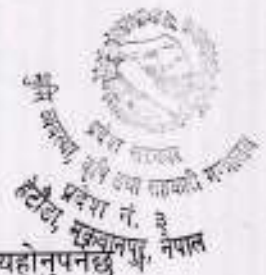 प्रदेश सरकार
भूमि व्यवस्था, कृषि तथा सहकारी मन्त्रालय
प्रदेश नं. ३
हेटौंडा, मकवानपुर, नेपाल
यहोनपर्नेछ